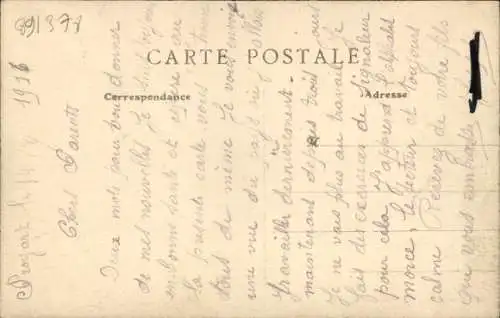 991378
CARTE POSTALE
Correspondance
Adresse
1916
Chers Parents
Deux mots pour vous donner
de mes nouvelles Je suis toujours
en bonne santé et espère au
la présente carte vous trouve
tous de même Je vous envoie
une vue du pays où
travailler dernièrement.
maintenant depuis trois jours
Je ne vais plus au travail Je
fais des exercices de Signaleur
pour cela J'apprend l'alphabet
morse, le secteur est toujours
calme Recevez de votre fils
qui vous embrasse